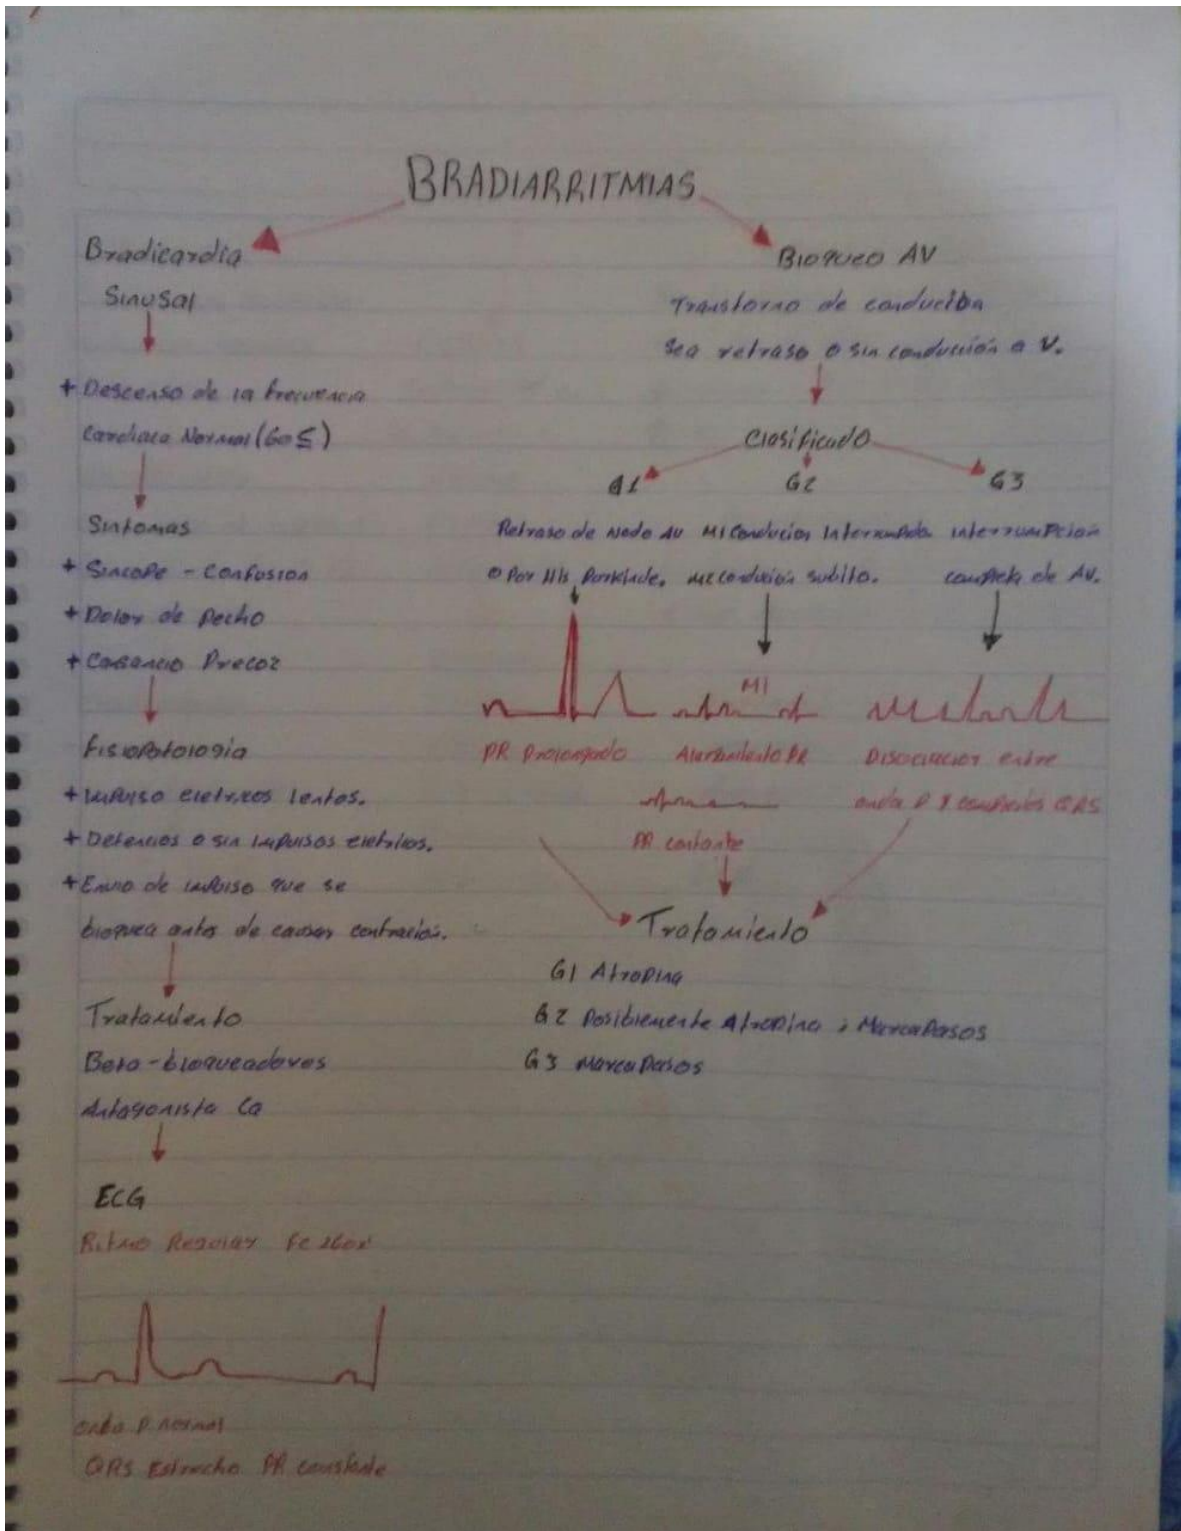 BRADIARRITMIAS
Bradicardia
Sinusal
+ Descenso de la frecuencia
Cardiaca Normal (60≤)
Sintomas
+ Sincope - Confusion
+ Dolor de Pecho
+ Cansancio Precoz
Fisiopatologia
+ Impulso eletricos lentos.
+ Detencios o sin impulsos eletricos.
+ Envio de impulso que se
bloquea antes de causar contracion.
Tratamiento
Beta-bloqueadores
Antagonista Ca
ECG
Ritmo Regular Fc
onda P normal
QRS Estrecho PR constante
Bloqueo AV
Transtorno de conducion
Sea retraso o sin conducción a V.
Clasificado
G1 G2 G3
Retraso de Nodo AV
o Por His
M1 Conducion Interrumpida.
M2 conducion subito.
interrumpcion
completa de AV.
M1
PR Prolongado
Alargamiento PR
PR constante
Disociacion entre
onda P y complejos QRS
Tratamiento
G1 Atropina
G2 Posiblemente Atropina; Marca Pasos
G3 Marca Pasos